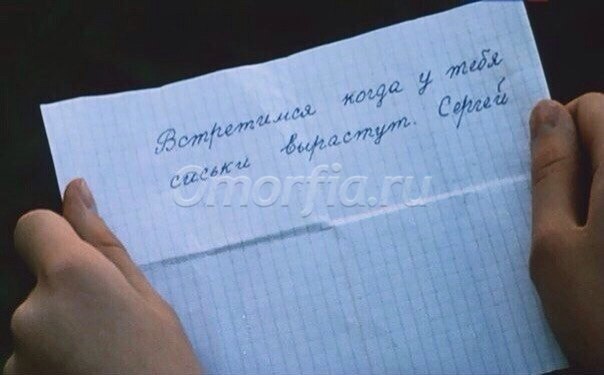 Встретимся когда у тебя
сиськи вырастут. Сергей
Omorfia.ru